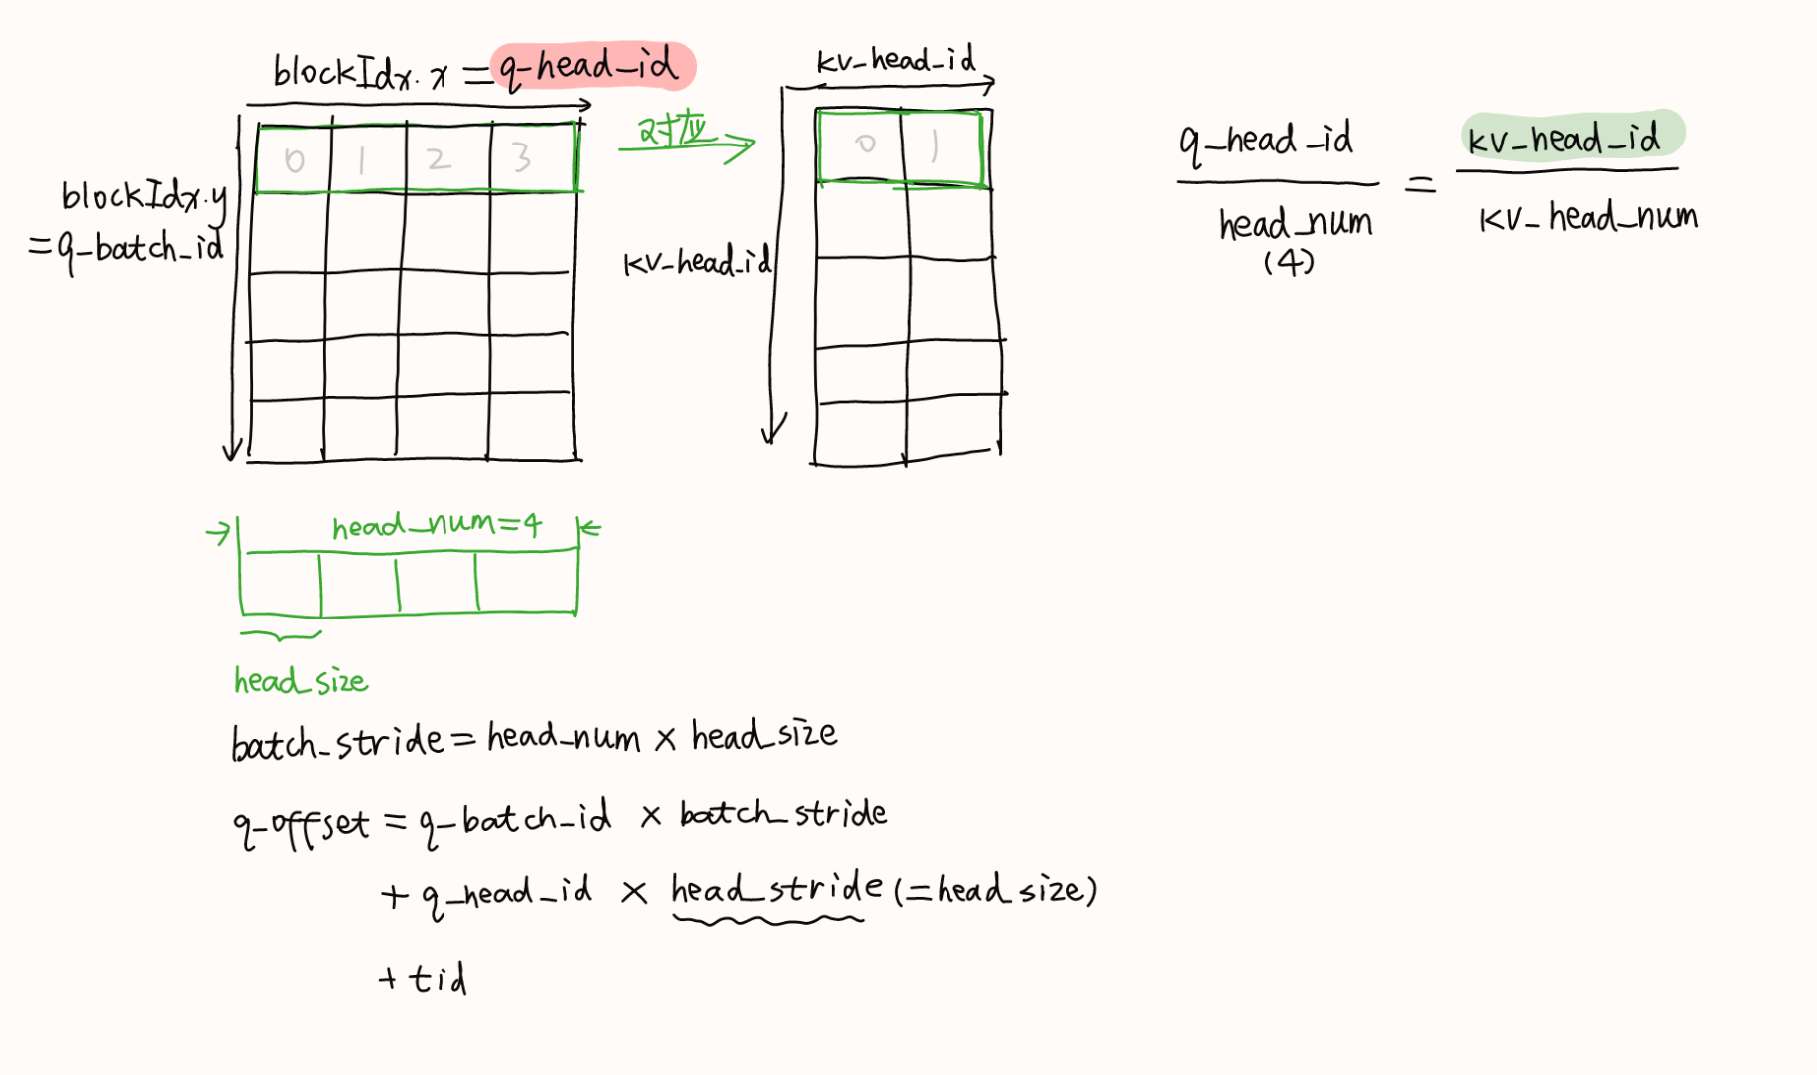 blockIdx.x = q-head_id
kv_head_id
对应
0 1 2 3
0 1
blockIdx.y
=q-batch_id
kv-head_id
q-head_id
head_num
(4)
=
kv_head_id
kv-head_num
head_num=4
head_size
batch_stride = head_num × head_size
q-offset = q-batch_id × batch_stride
+ q_head_id × head_stride (=head_size)
+ tid